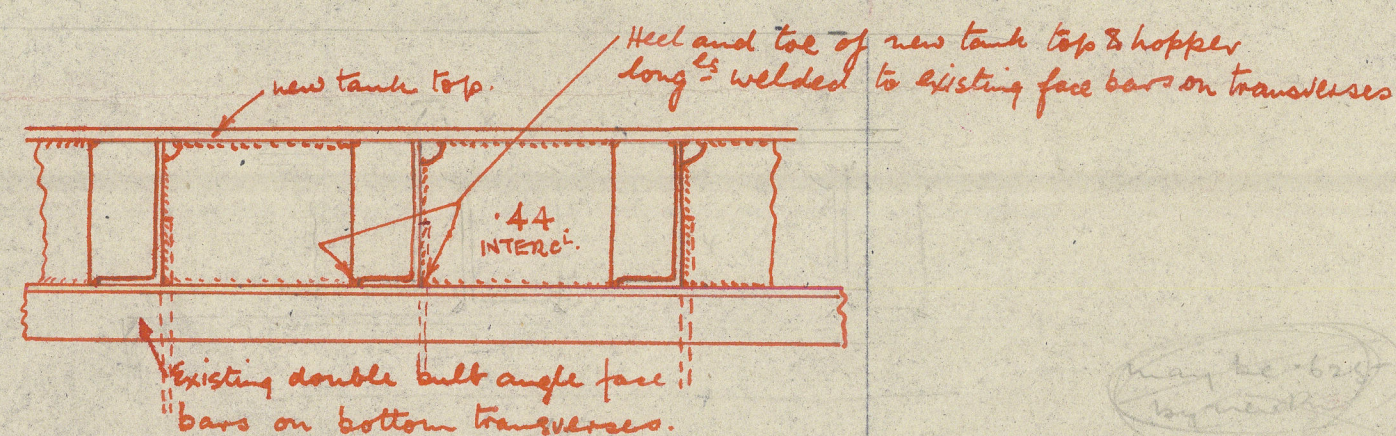 Heel and toe of new tank top & hopper
longls welded to existing face bars on transverses
new tank top.
.44
INTERCL.
Existing double bulb angle face
bars on bottom transverses.
may be .625